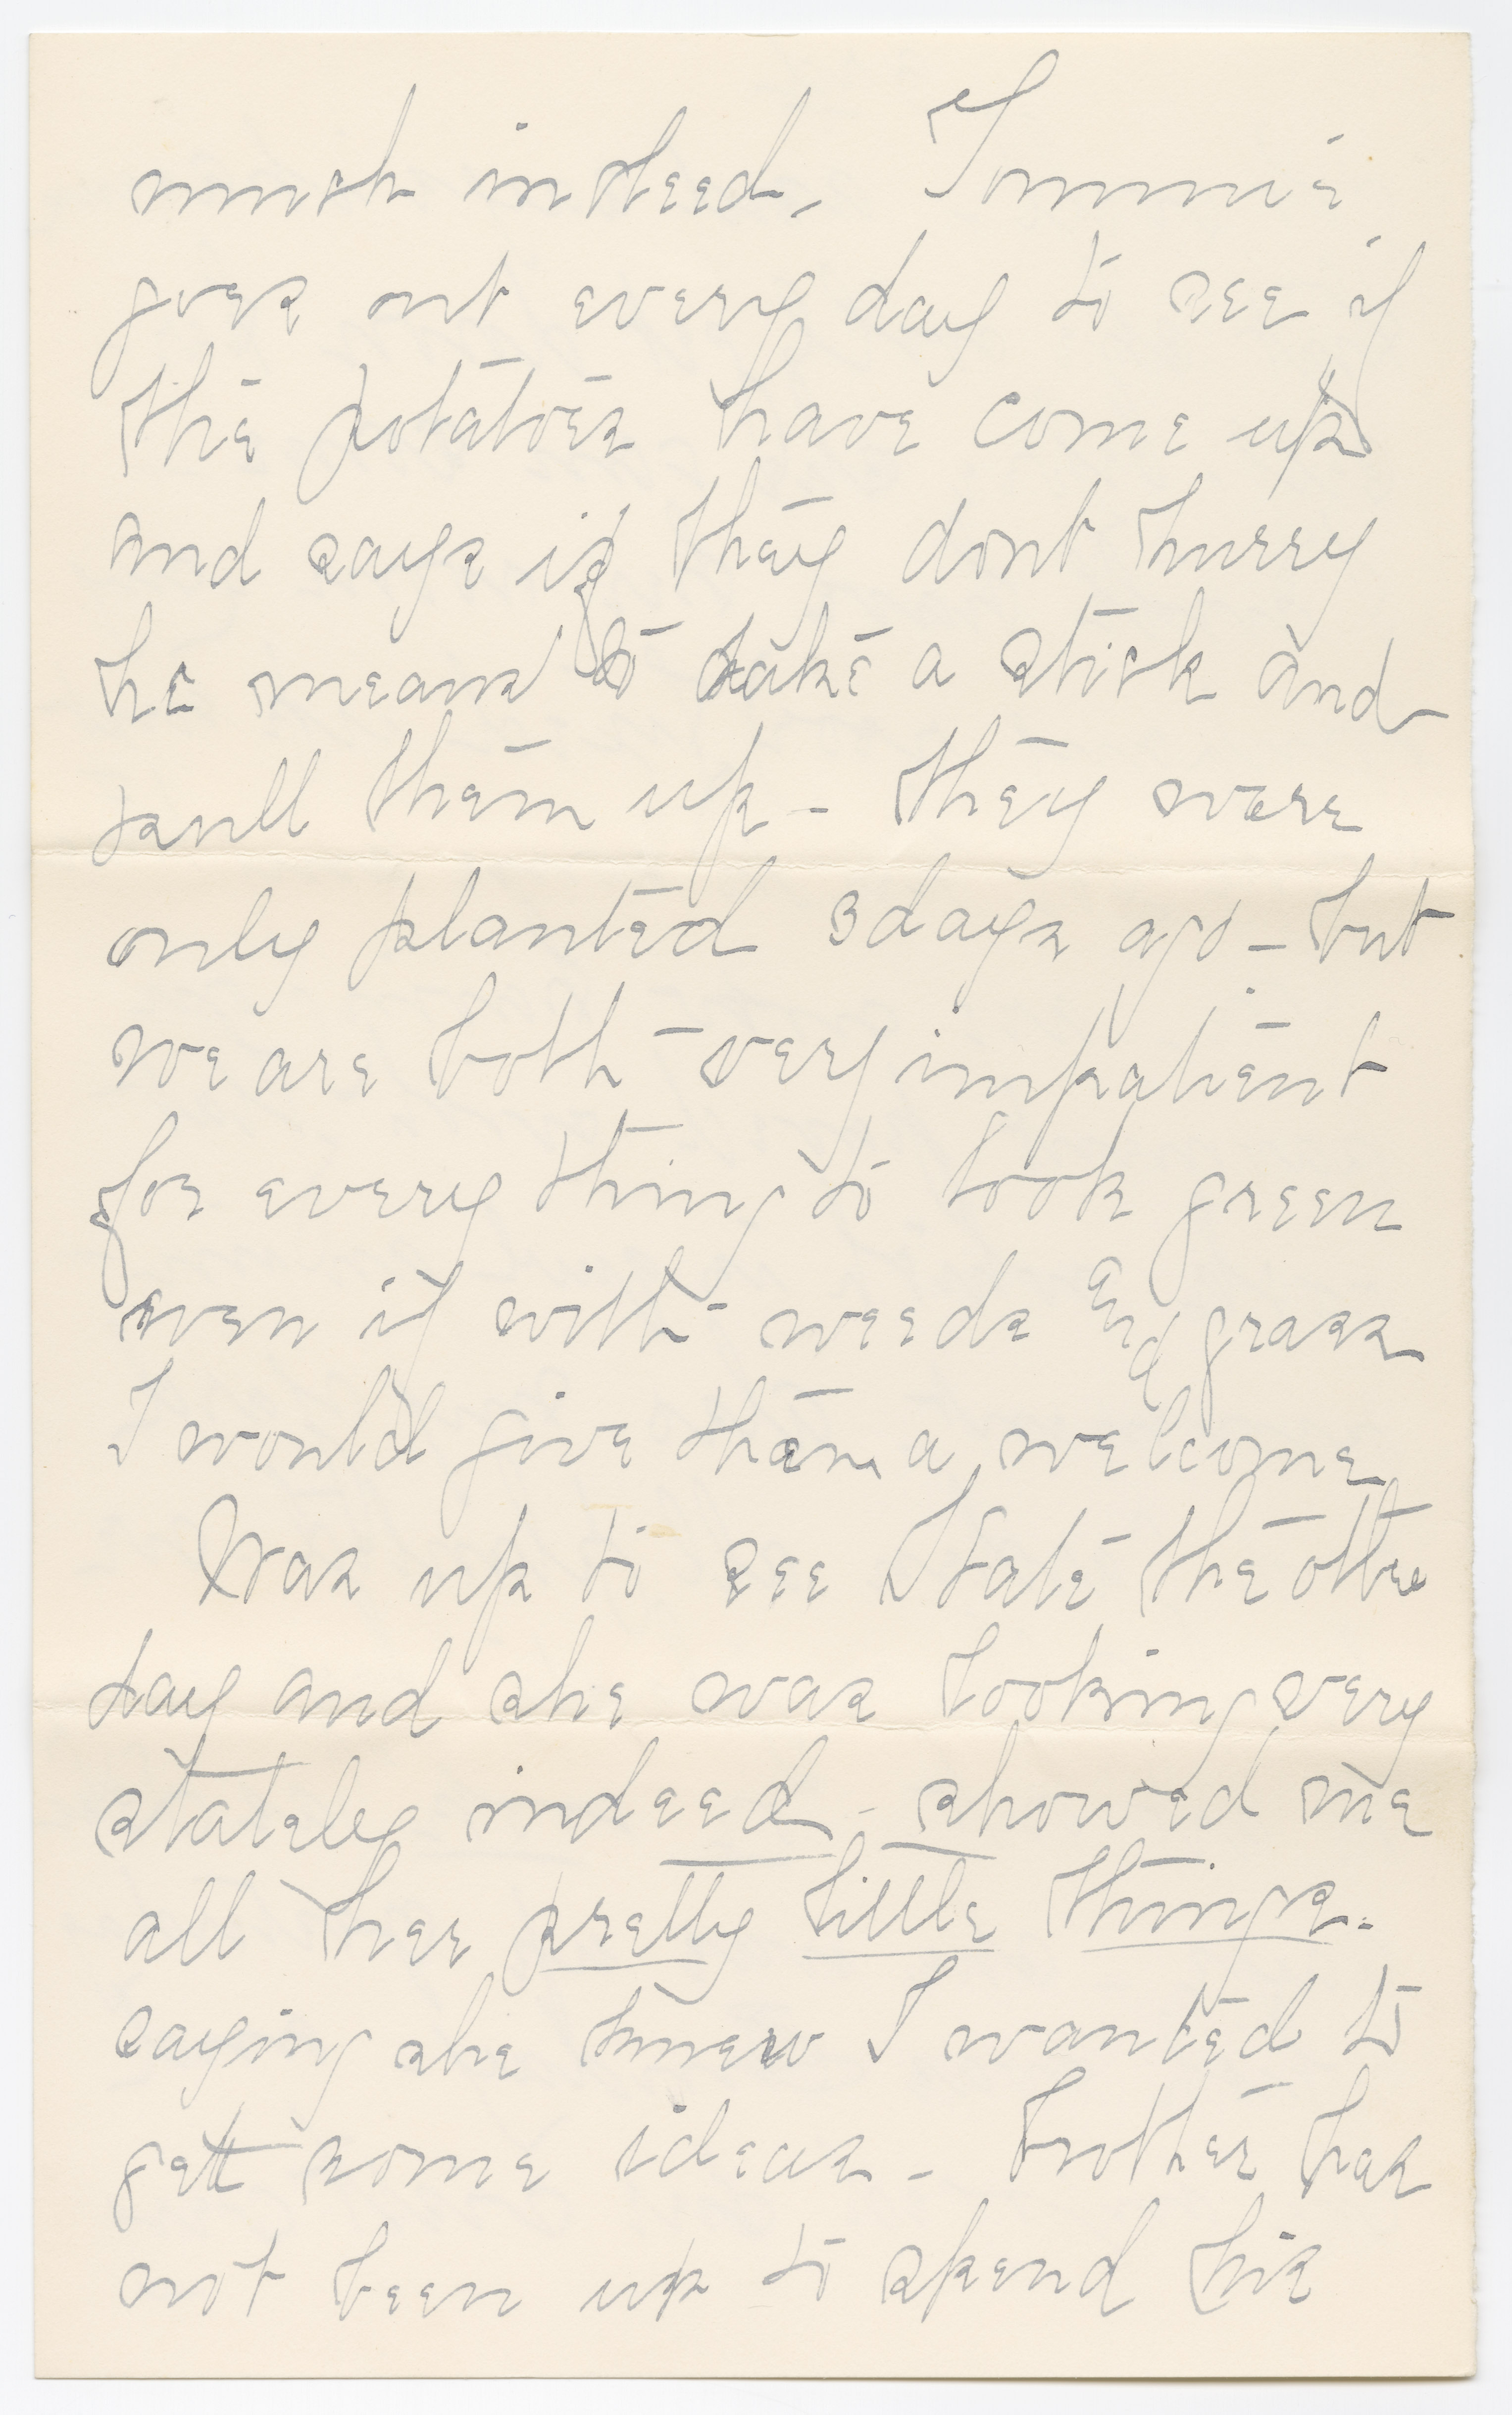 much indeed. Tommie
goes out every day to see if
the potatoes have come up
and says if they dont hurry
he means to take a stick and
pull them up - they were
only planted 3 days ago - but
we are both very impatient
for every thing to look green
even if with weeds and grass
I would give them a welcome
Was up to see Kate the other
day and she was looking very
stately indeed - showed me
all her pretty little things.
saying she knew I wanted to
get some ideas - brother has
not been up to spend his